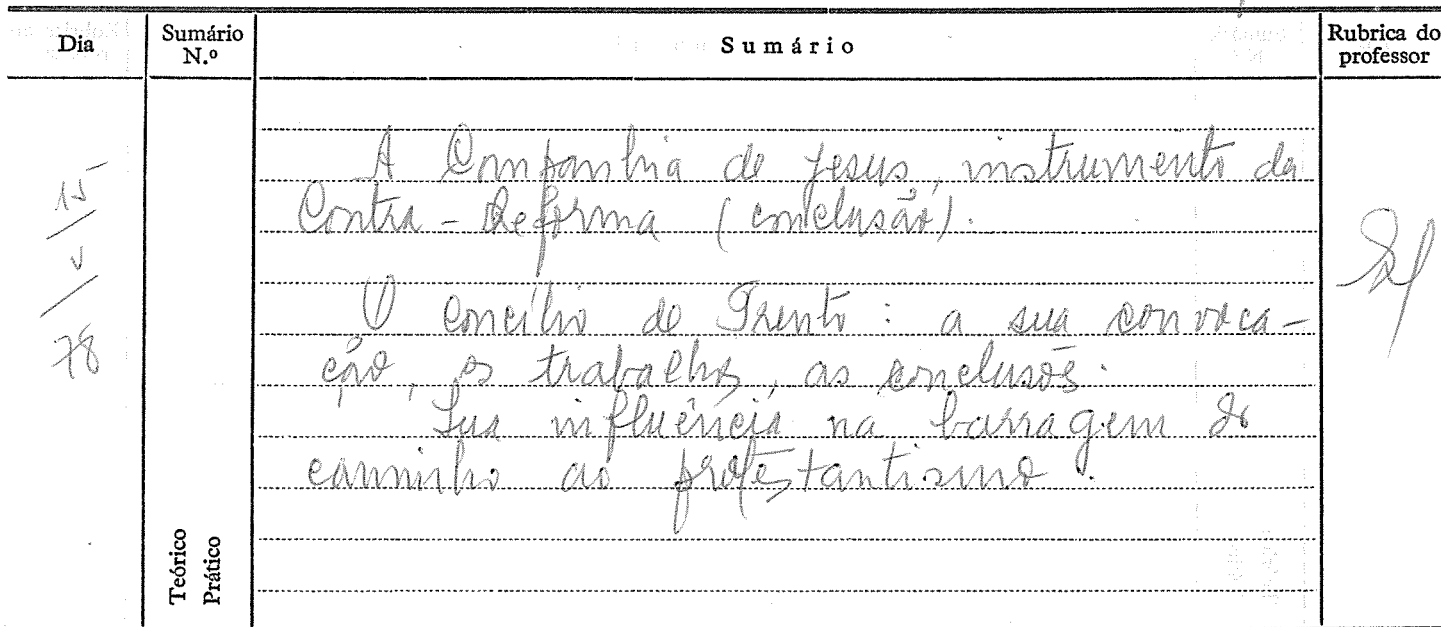 Dia
Sumário N.º
Sumário
Rubrica do professor
15
V
78
A Companhia de Jesus, instrumento da
Contra-Reforma (conclusão).
O concílio de Trento: a sua convoca-
ção, os trabalhos, as conclusões.
Sua influência na barragem do
caminho ao protestantismo.
Teórico
Prático